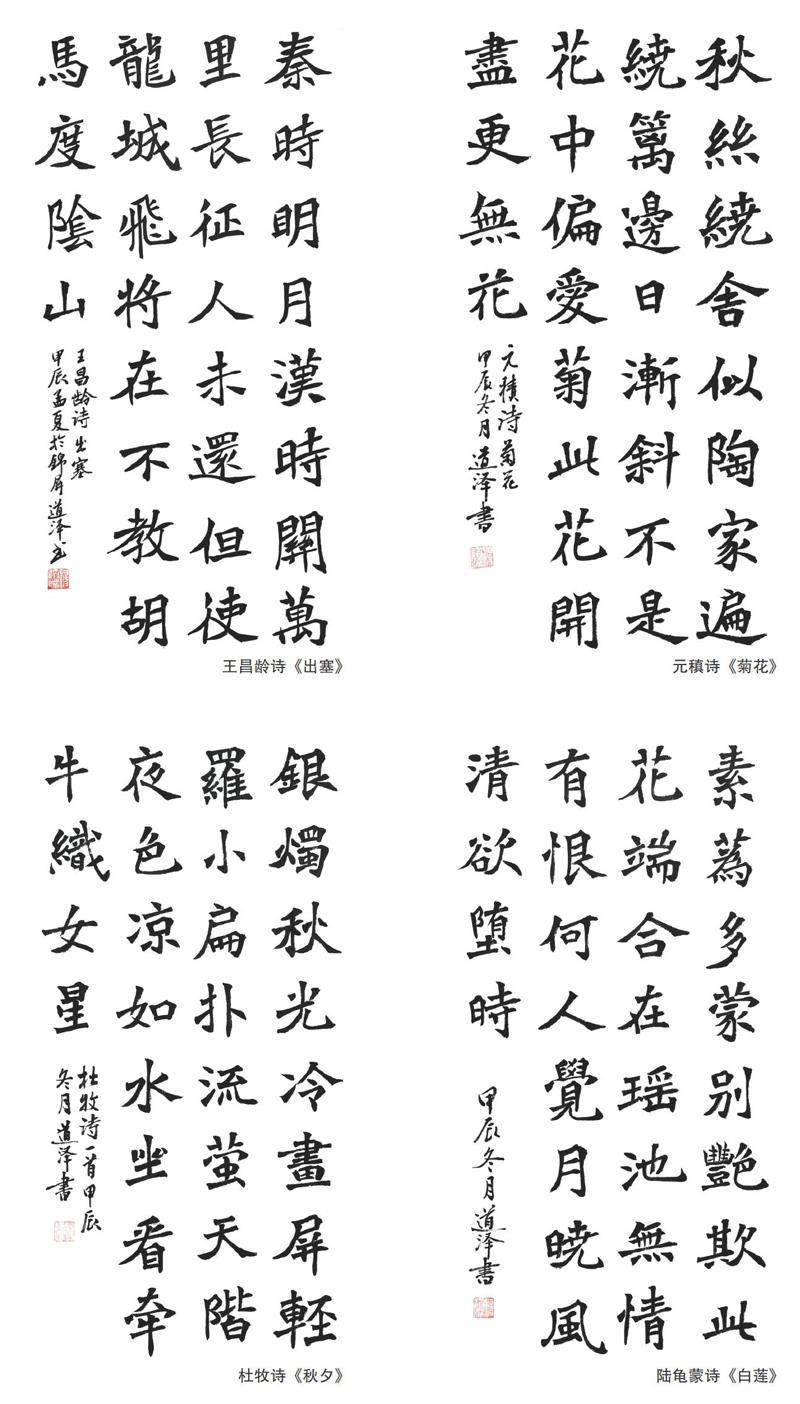 秦時明月漢時關萬
里長征人未還但使
龍城飛將在不教胡
馬度陰山
王昌龄诗出塞
甲辰孟夏於錦屏道泽书
王昌龄诗《出塞》
秋絲繞舍似陶家遍
繞篱邊日漸斜不是
花中偏愛菊此花開
盡更無花
元稹诗菊花
甲辰冬月道泽書
元稹诗《菊花》
銀燭秋光冷畫屏輕
羅小扇扑流萤天階
夜色凉如水坐看牵
牛織女星
杜牧诗一首甲辰
冬月道泽書
杜牧诗《秋夕》
素蒍多蒙别艷欺此
花端合在瑶池無情
有恨何人覺月曉風
清欲堕時
甲辰冬月道泽書
陆龟蒙诗《白莲》